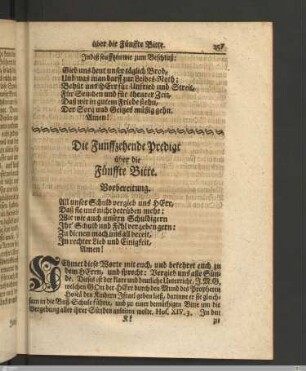 über die Fünffte Bitte.
Indeß seuffzen wir zum Beschluß:
Gieb uns heut unser täglich Brod,
Und was man darff zur Leibes-Noth;
Behüt uns HErr für Unfried und Streit,
Für Seuchen und für theurer Zeit,
Daß wir in gutem Friede stehn,
Der Sorg und Geitzes müßig gehn.
Amen!
Die Funffzehende Predigt
über die
Fünffte Bitte.
Vorbereitung.
All unser Schuld vergieb uns HErr,
Daß sie uns nicht betrüben mehr:
Wie wir auch unsern Schuldigern
Ihr Schuld und Fehl vergeben gern:
Zu dienen mach uns all bereit,
In rechter Lieb und Einigkeit,
Amen!
Nehmet diese Worte mit euch, und bekehret euch zu
dem HErrn, und sprecht: Vergieb uns alle Sün-
de. Dieses ist der klare und deutliche Unterricht, J.M.G.
welchen GOtt der HErr durch den Mund des Propheten
Hoseä den Kindern Israel geben ließ, darinne er sie gleich-
sam in die Buß-Schule führte, und zu einer demüthigen Bitte um die
Vergebung aller ihrer Sünden anleiten wolte, Hos. XIV. 3. In der